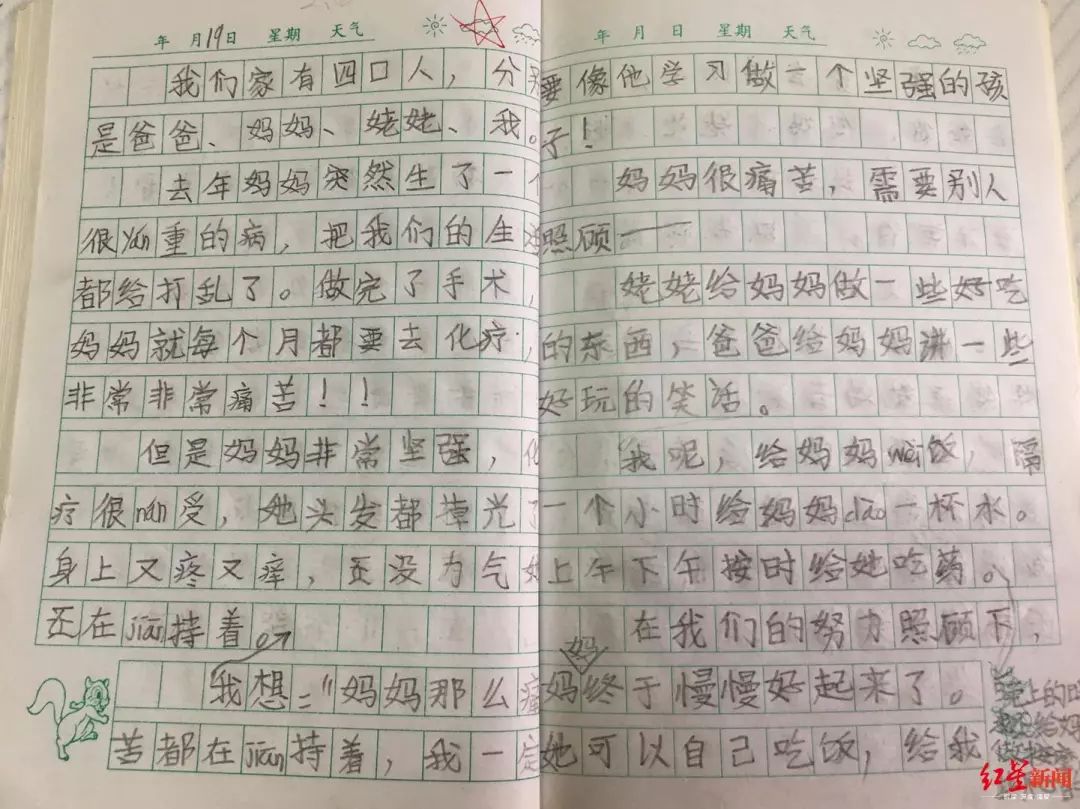 年 月19日 星期 天气
我们家有四口人，分别
是爸爸、妈妈、姥姥、我。
去年妈妈突然生了一个
很yán重的病，把我们的生活
都给打乱了。做完了手术，
妈妈就每个月都要去化疗，
非常非常痛苦！！
但是妈妈非常坚强，化
疗很nán受，她头发都掉光了
身上又疼又痒，还没力气
还在jiān持着。
我想："妈妈那么痛
苦都在jiān持着，我一定
年 月 日 星期 天气
要像他学习做一个坚强的孩
子！
妈妈很痛苦，需要别人
照顾——
姥姥给妈妈做一些好吃
的东西，爸爸给妈妈讲一些
好玩的笑话。
我呢，给妈妈wèi饭，隔
一个小时给妈妈dào一杯水。
上午下午按时给她吃药。
在我们的努力照顾下，
妈妈终于慢慢好起来了。
她可以自己吃饭，给我
晚上的时
给妈
红星新闻